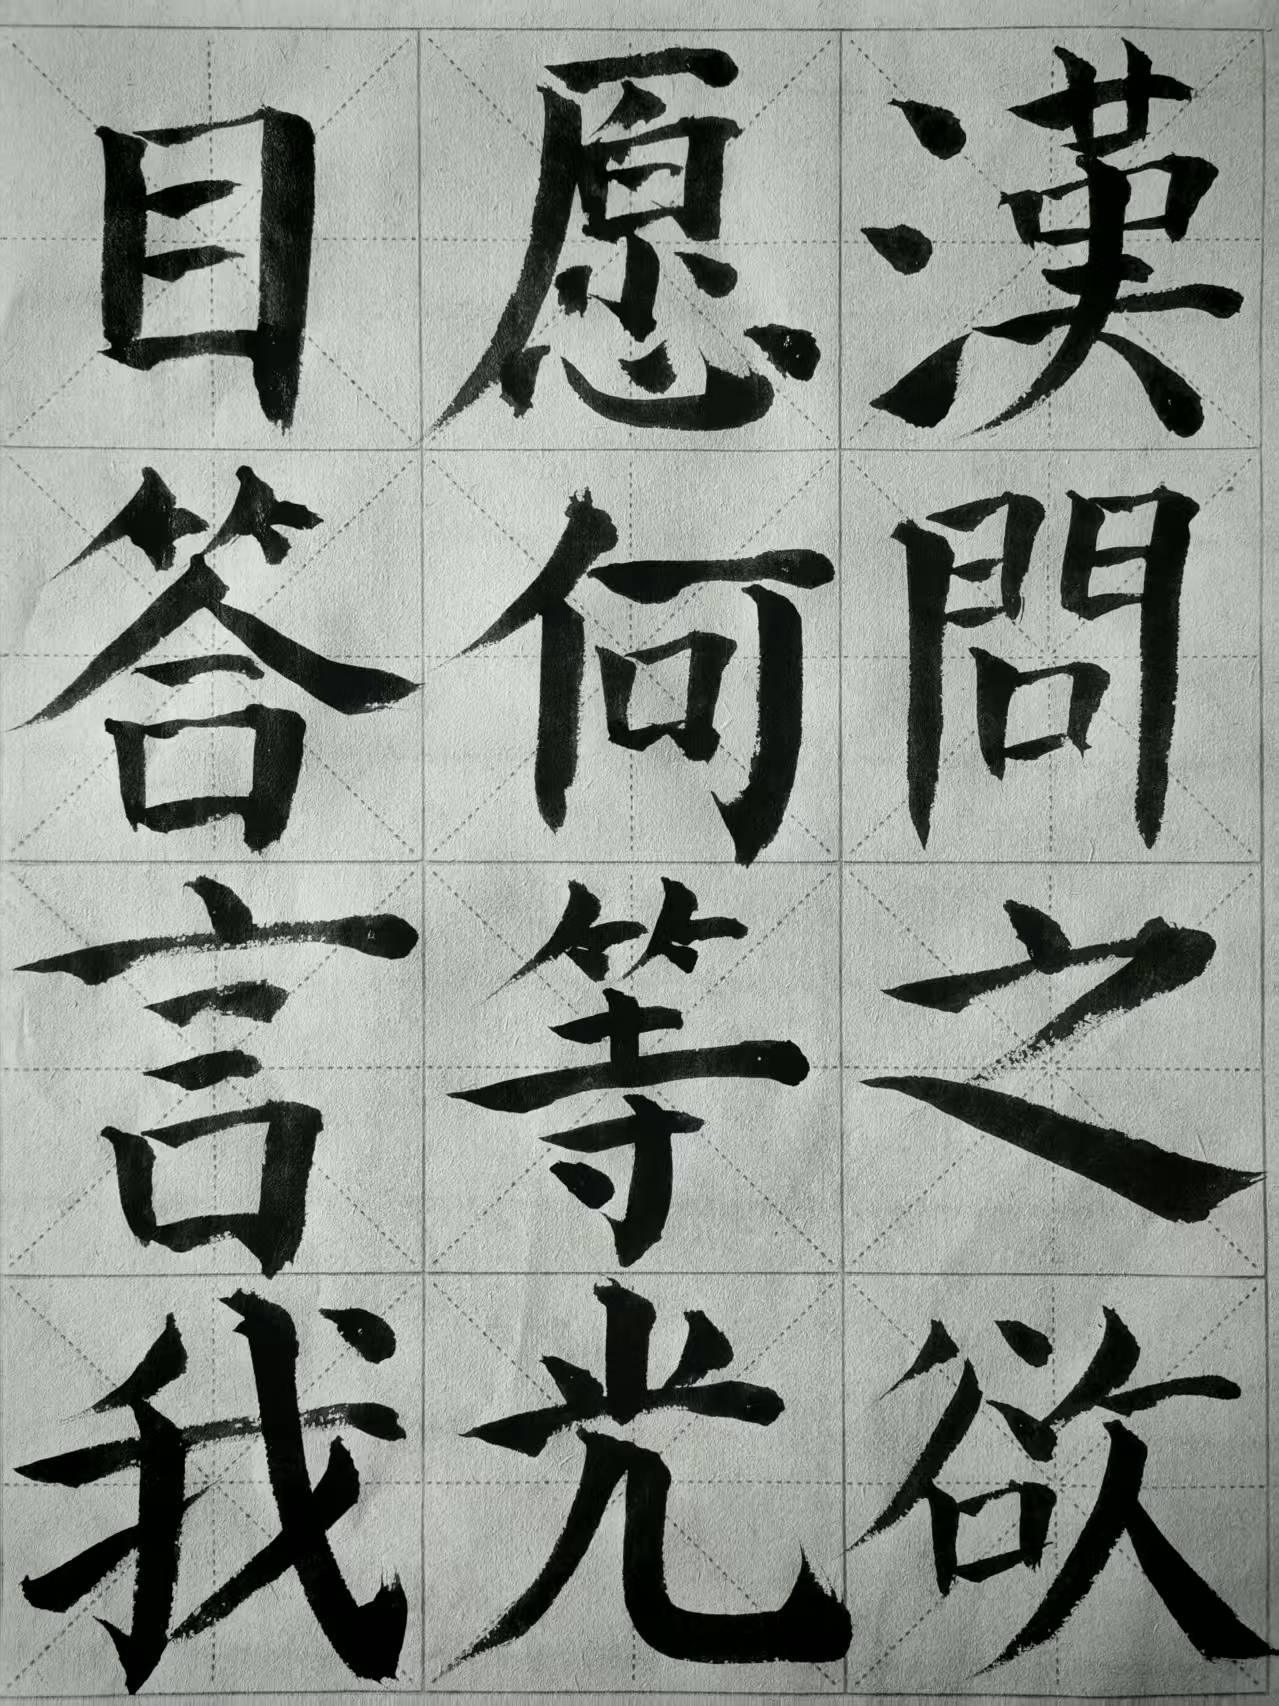 漢問之欲
愿何等光
目答言我